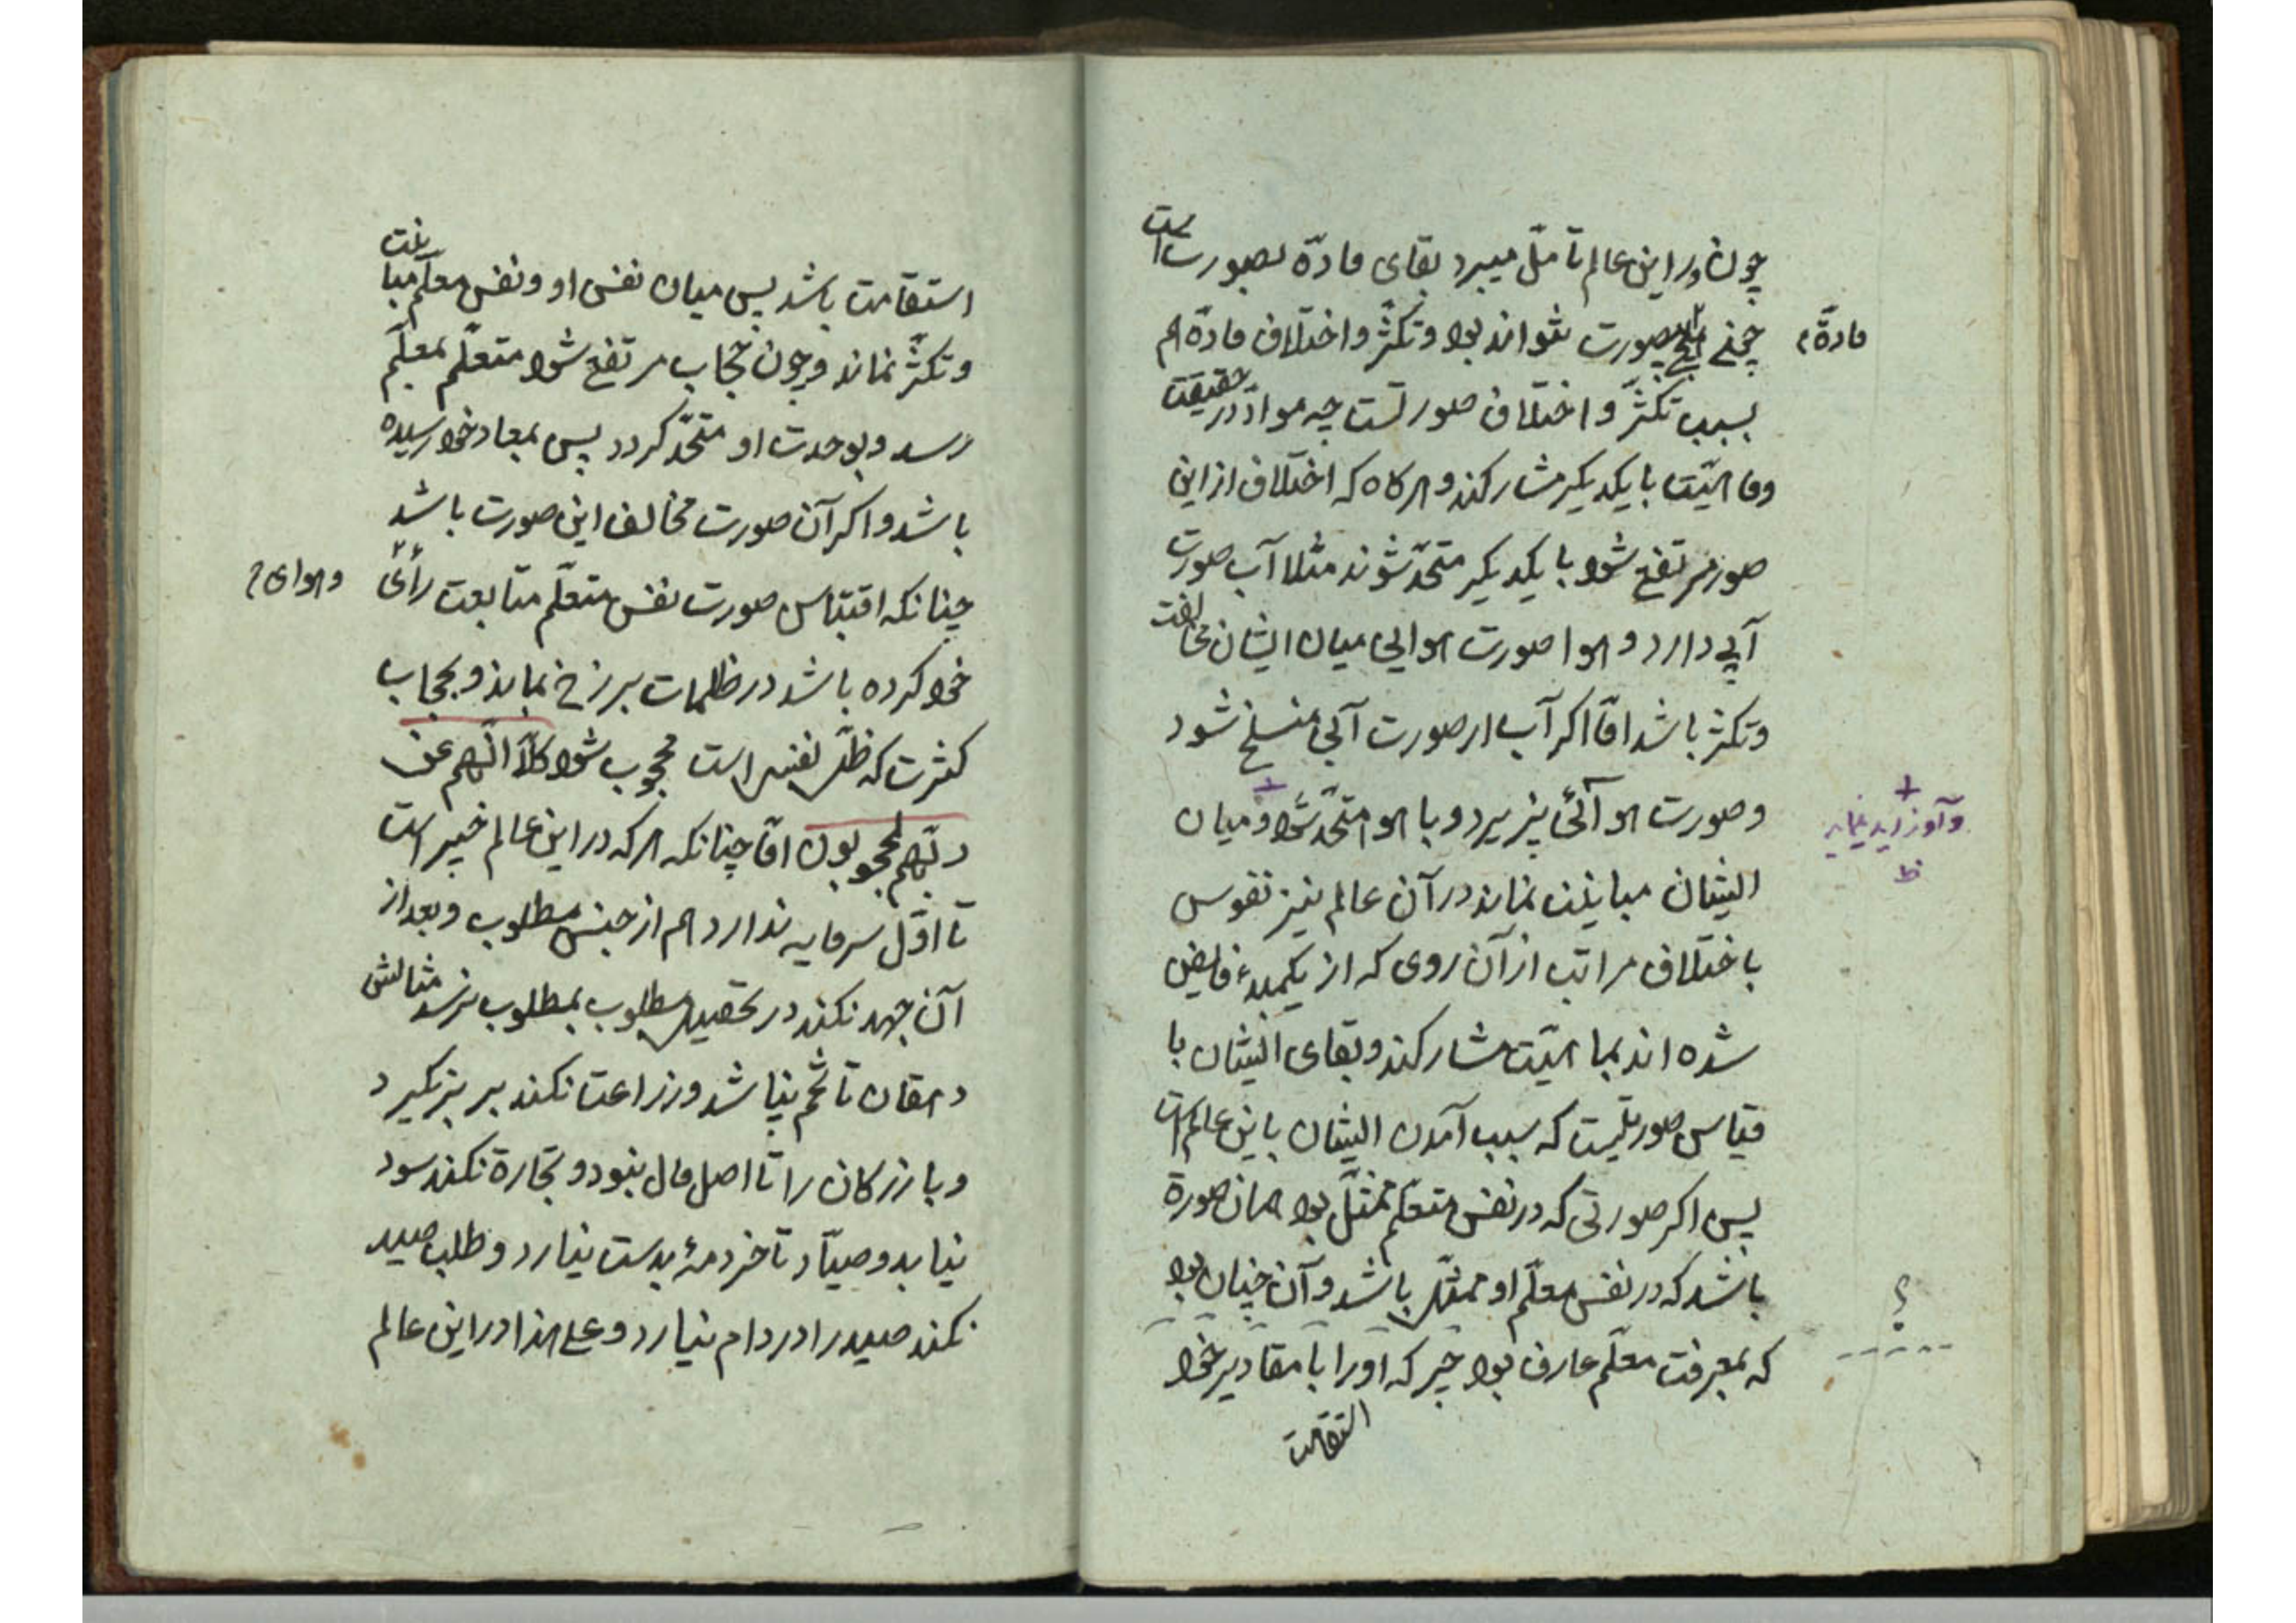 چون در این عالم تامّل میبرد بقای مادّه بصورتست
چنے هیچ صورت نتواند بود وتکثّر و اختلاف مادّه هم
مادّهٔ
بسبب تکثّر و اختلاف صورتست چه موادّ در حقیقت
وماهیّت با یکدیکر مشارکند و هرکاه که اختلاف از این
صور مرتفع شود با یکدیکر متحّد شوند مثلا آب صورت
آبی دارد و هوا صورت هوایی میان ایشان مخالفت
وتکثر باشد امّا اکر آب از صورت آبی منسلخ شود
وصورت هوائی پزیرد و با هوا متحّد شود ومیان
ایشان مباینت نماند در آن عالم نیز نفوس
باختلاف مراتب از آن روی که از یکمبدء فایض
شده اند بماهیّت مشارکند وبقای ایشان با
قیاس صوریست که سبب آمدن ایشان باین عالم است
پس اکر صورتی که در نفس متعلّم متمثّل بود همان صورة
باشد که در نفس معلّم او متمثّل باشد و آن چنان بود
که بمعرفت معلّم عارف بود چیر که اورا با مقادیر خود
استقامت
استقامت باشد پس میان نفس او ونفس معلّم مباینت
وتکثّر نماند وچون حجاب مرتفع شود متعلّم بمعلّم
رسد وبوحدت او متحّد کردد پس بمعاد خود رسیده
باشد واکر آن صورت مخالف این صورت باشد
چنانکه اقتباس صورت نفس متعلّم متابعت رأی
وهوای
خود کرده باشد در ظلمات برزخ بماند وبحجاب
کثرت که ظلّ نفس است محجوب شود کلّا انّهم عن
ربّهم لمحجوبون امّا چنانکه هر که در این عالم خبیر است
تا اوّل سرمایه ندارد هم از جنس مطلوب وبعد از
آن جهد نکند در تحصیل مطلوب بمطلوب نرسد مثالش
دهقان تا تخم نباشد وزراعت نکند بر بزنکیرد
وبازرکان را تا اصل مال نبود و تجارة نکند سود
نیابد وصیّاد تا خردمهٔ بدست نیارد وطلب صید
نکند صید را در دام نیارد و علی هذا در این عالم